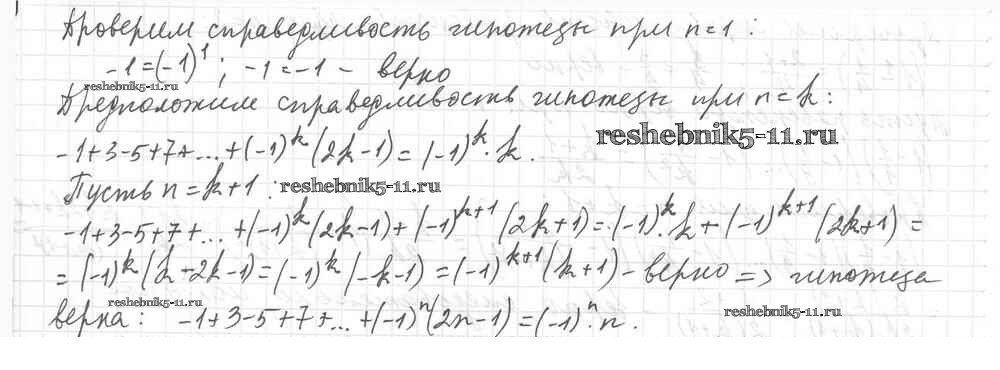 Проверим справедливость гипотезы при n=1:
-1=(-1)^1; -1=-1 - верно
reshebnik5-11.ru
Предположим справедливость гипотезы при n=k:
reshebnik5-11.ru
-1+3-5+7+...+(-1)^k(2k-1)=(-1)^k·k.
Пусть n=k+1:
reshebnik5-11.ru
-1+3-5+7+...+(-1)^k(2k-1)+(-1)^{k+1}(2k+1)=(-1)^k·k+(-1)^{k+1}(2k+1)=
=(-1)^k(k-2k-1)=(-1)^k(-k-1)=(-1)^{k+1}(k+1)-верно=> гипотеза
reshebnik5-11.ru
reshebnik5-11.ru
верна: -1+3-5+7+...+(-1)^n(2n-1)=(-1)^n·n.